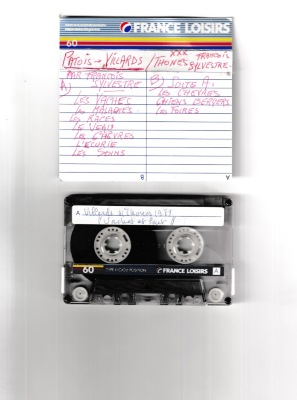 FRANCE LOISIRS
60
PATOIS → VILLARDS / THONES XXX FRANCOIS SYLVESTRE
PAR FRANCOIS SYLVESTRE
A)
LES VACHES
LES MALADIES
LES RACES
LE VEAU
LES CHÈVRES
L'ECURIE
LES SOINS
B) SUITE A.
LES CHEVRES
CHIENS BERGERS
LES FOIRES
B
A
A
60
TYPE I (Fe2O3) POSITION
FRANCE LOISIRS
A